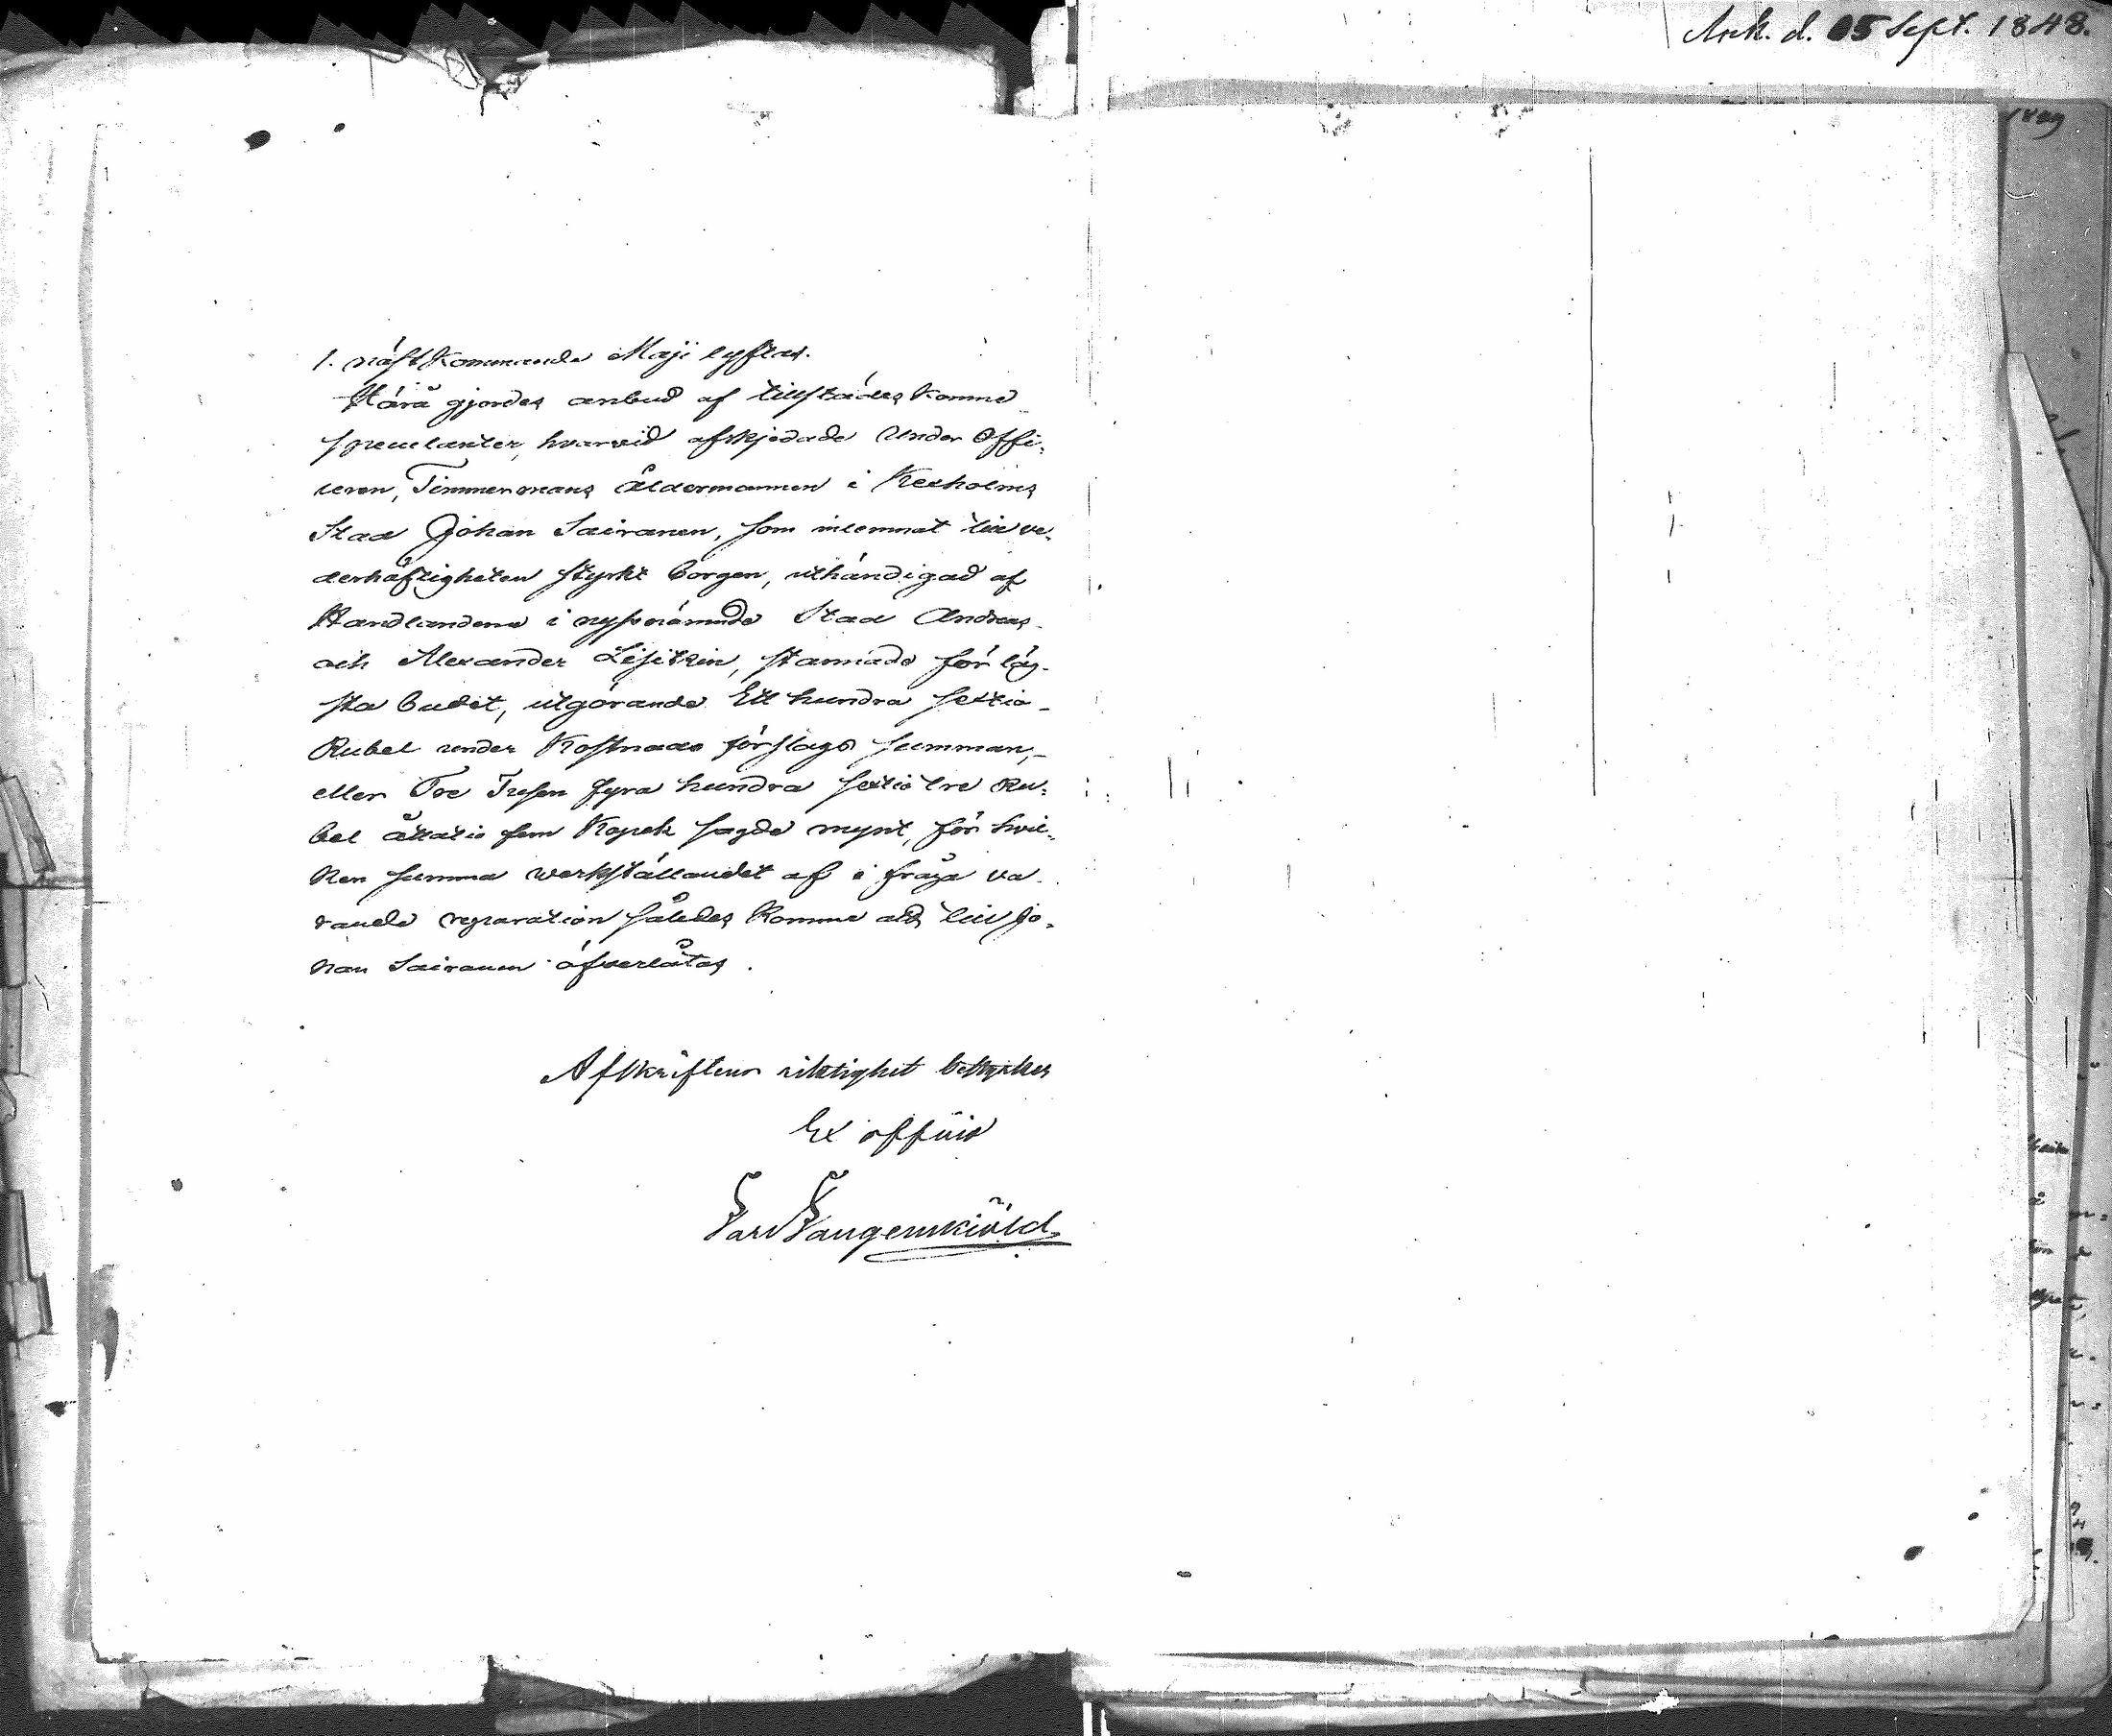 Ank. d. 05 Sept. 1848.
1. nästkommande Maji lyftas.
Härå gjordes anbud af tillstädes komne
speculanter, hvarvid afskjedade Under Offi:
ceren, Timmermans åldermannen i Kexholms
Stad Johan Sairanen, som inlemnat till ve-
derhäftigheten styrkt borgen, uthändigad af
Handlandene i nyssnämnde Stad Andreas
och Alexander Lisitzin, stannade för läg-
sta budet, utgörande Ett hundra sextio
Rubel under Kostnads förslags summan,
eller Tre Tusen fyra hundra sextio tre Ru:
bel åttatio fem Kopek sagde mynt, för hvil-
ken summa werkställandet af i fråga va-
rande reparation således komme att till Jo-
han Sairanen öfverlåtas.
Afskriftens riktighet bestyrker
Ex officio
Carl Langenskiöld